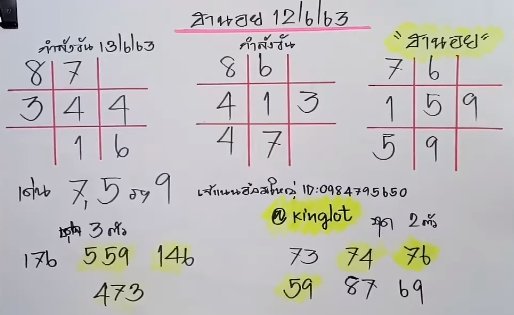 ฮานอย 12/6/63
กำลังวัน 13/6/63
8 7
3 4 4
1 6
กำลังวัน
8 6
4 1 3
4 7
"ฮานอย"
7 6
1 5 9
5 9
เด่น 7,5 รอง 9
ID:0984795650
@kinglot
ชุด 3 ตัว
176 559 146
473
ชุด 2 ตัว
73 74 76
59 87 69